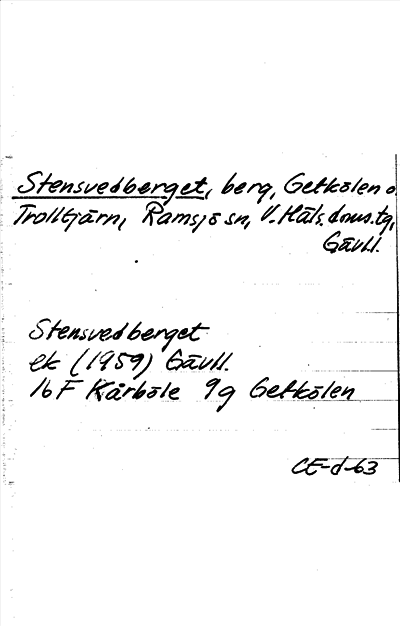 Stensvedberget, berg, Getkölen o.
Trolltjärn, Ramsjö sn, V. Häls. doms.tg,
Gävll.
Stensvedberget
ek (1959) Gävll.
16F Kårböle 9g Getkölen
CE-d-63